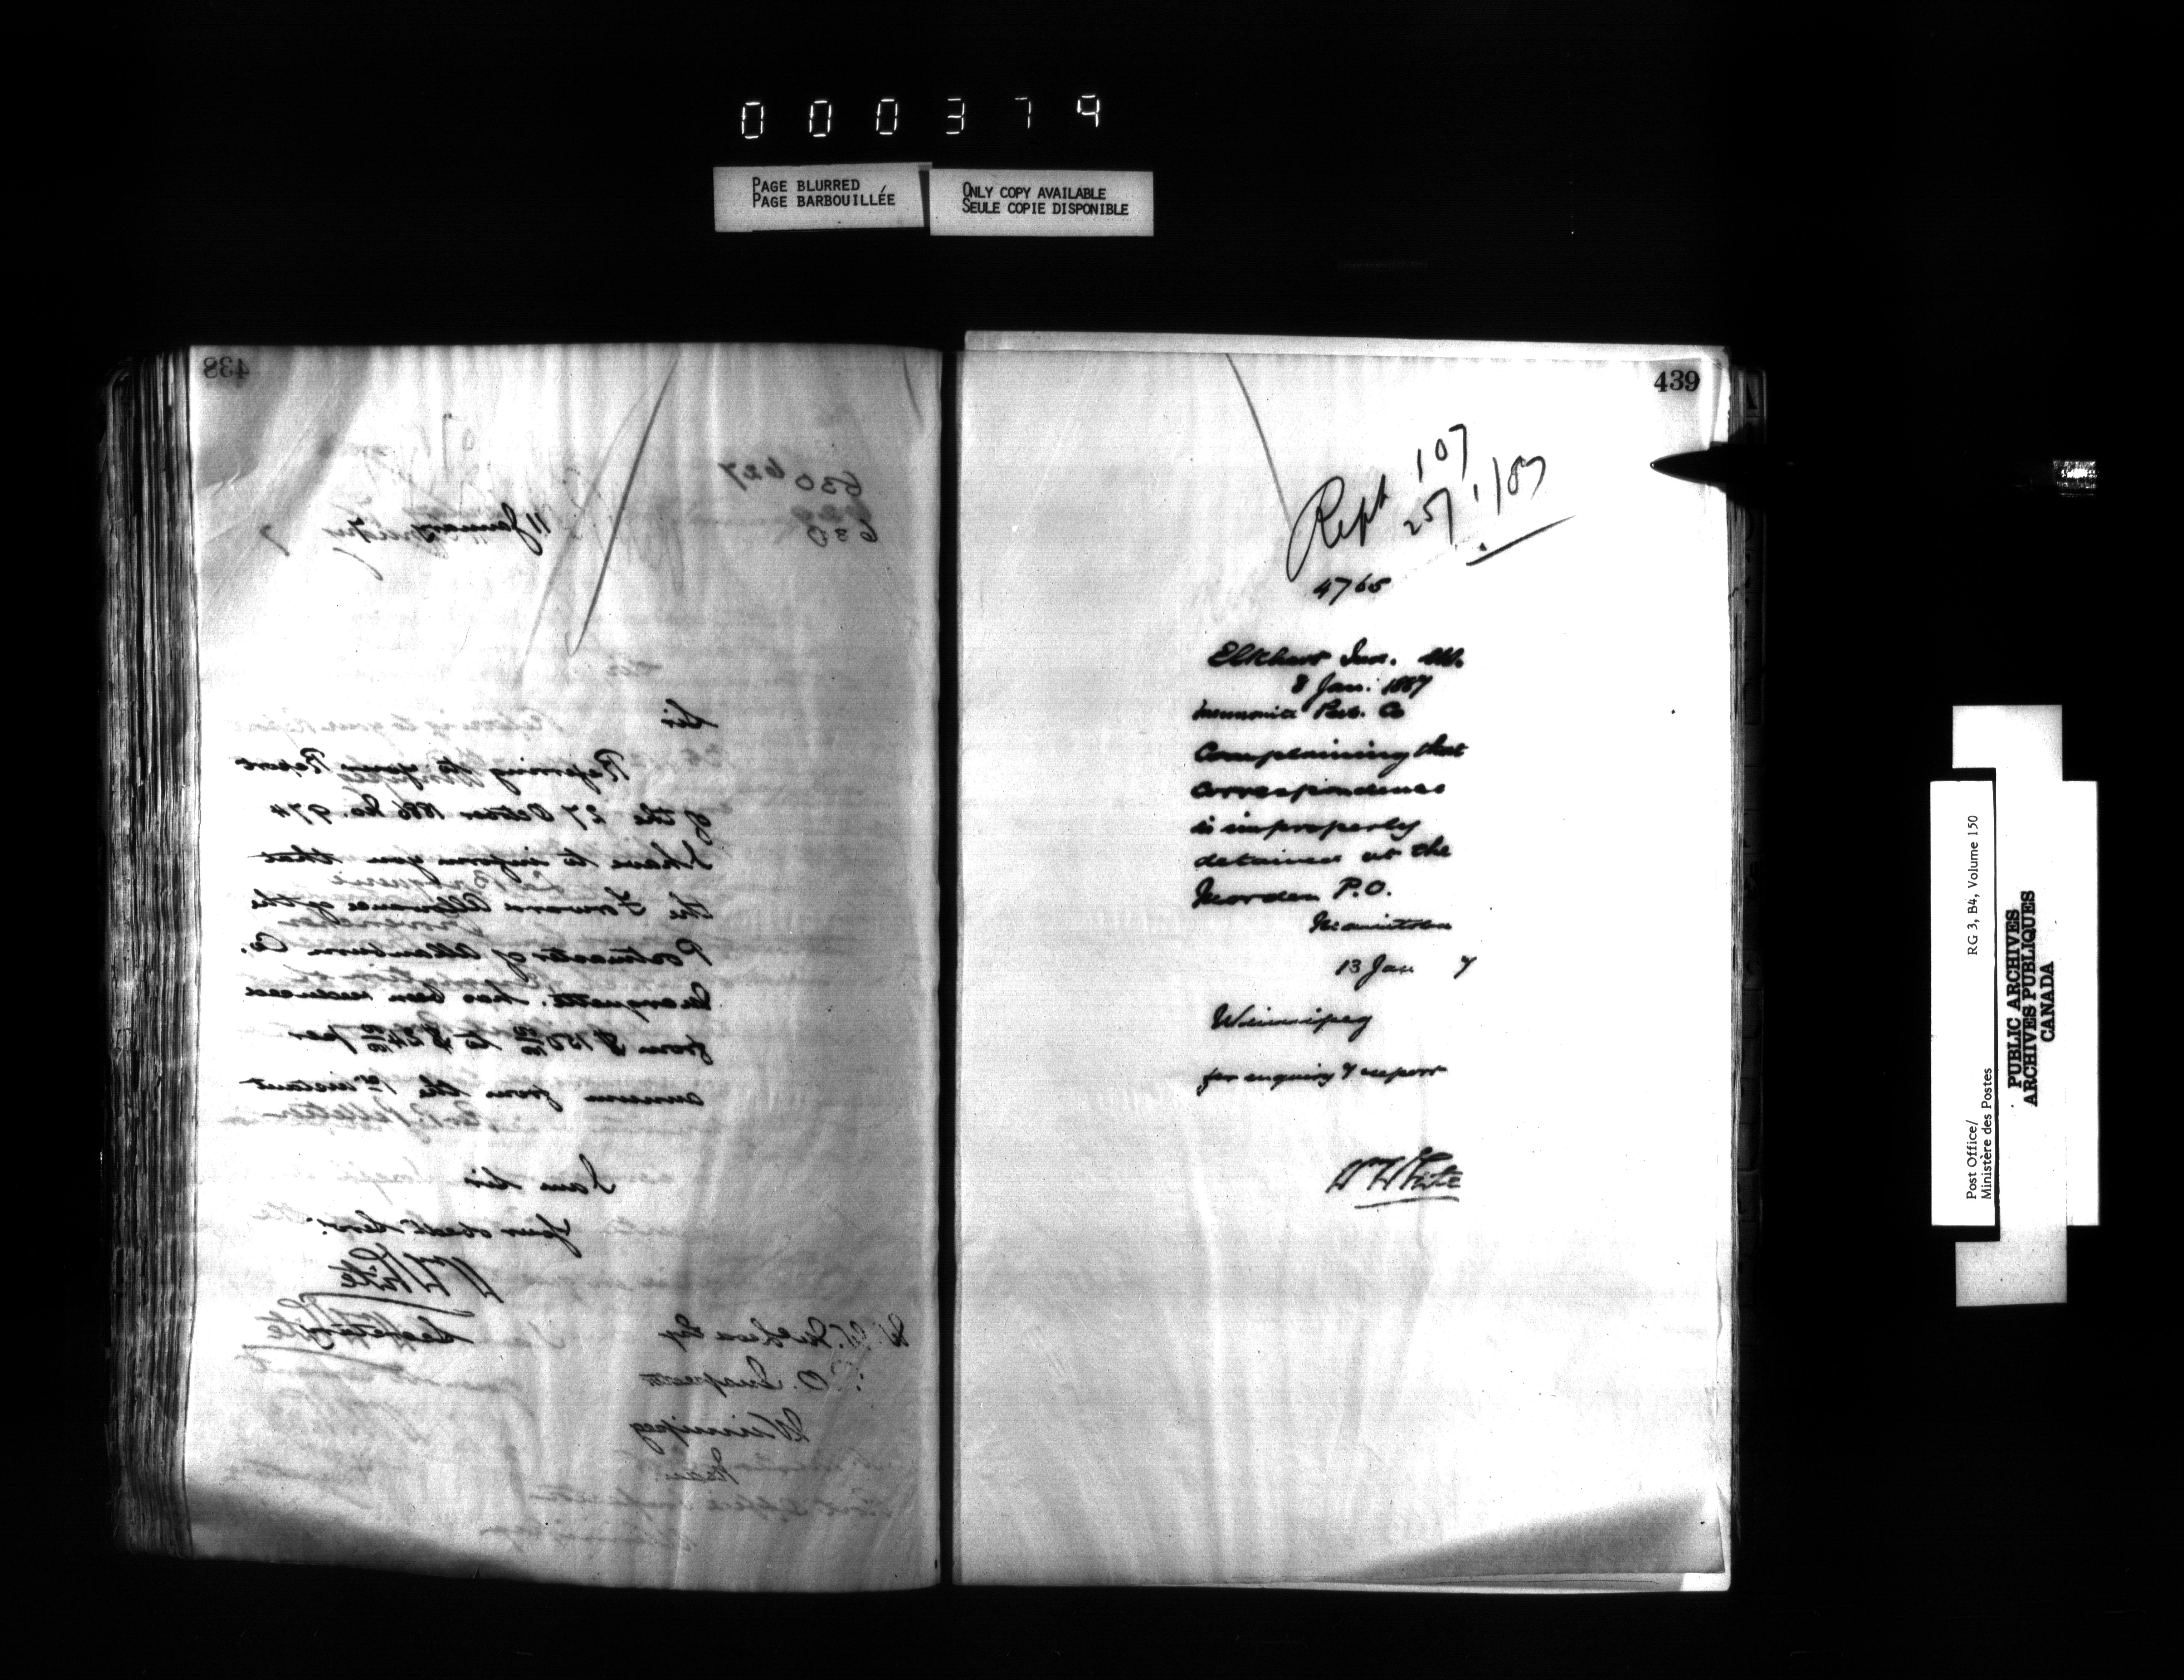 000379
PAGE BLURRED
PAGE BARBOUILLÉE
ONLY COPY AVAILABLE
SEULE COPIE DISPONIBLE
438
630 627
630
11 January 7
Sir
Referring to your Report
of the 27 October 1886 No. 974
I have to inform you that
the Forward Allowance of the
Postmaster of Allanburn Co.
Marquette, has been reduced
from $ 150 00/100 to $ 24 00/100 per
annum from the 1st instant
I am Sir
Your obedt Servt
Wm White
Secretary
W. W. McLeod Esq
P.O. Inspector
Winnipeg
Man.
439
Rept 107
25/1/87
4765
Elkhart Ind.
8 Jan. 1887
Mennonite Pub. Co
Complaining that
correspondence
is improperly
detained at the
Morden P.O.
Manitoba
13 Jan 7
Winnipeg
for enquiry & report
W White
Post Office/
Ministère des Postes
RG 3, B4, Volume 150
PUBLIC ARCHIVES
ARCHIVES PUBLIQUES
CANADA